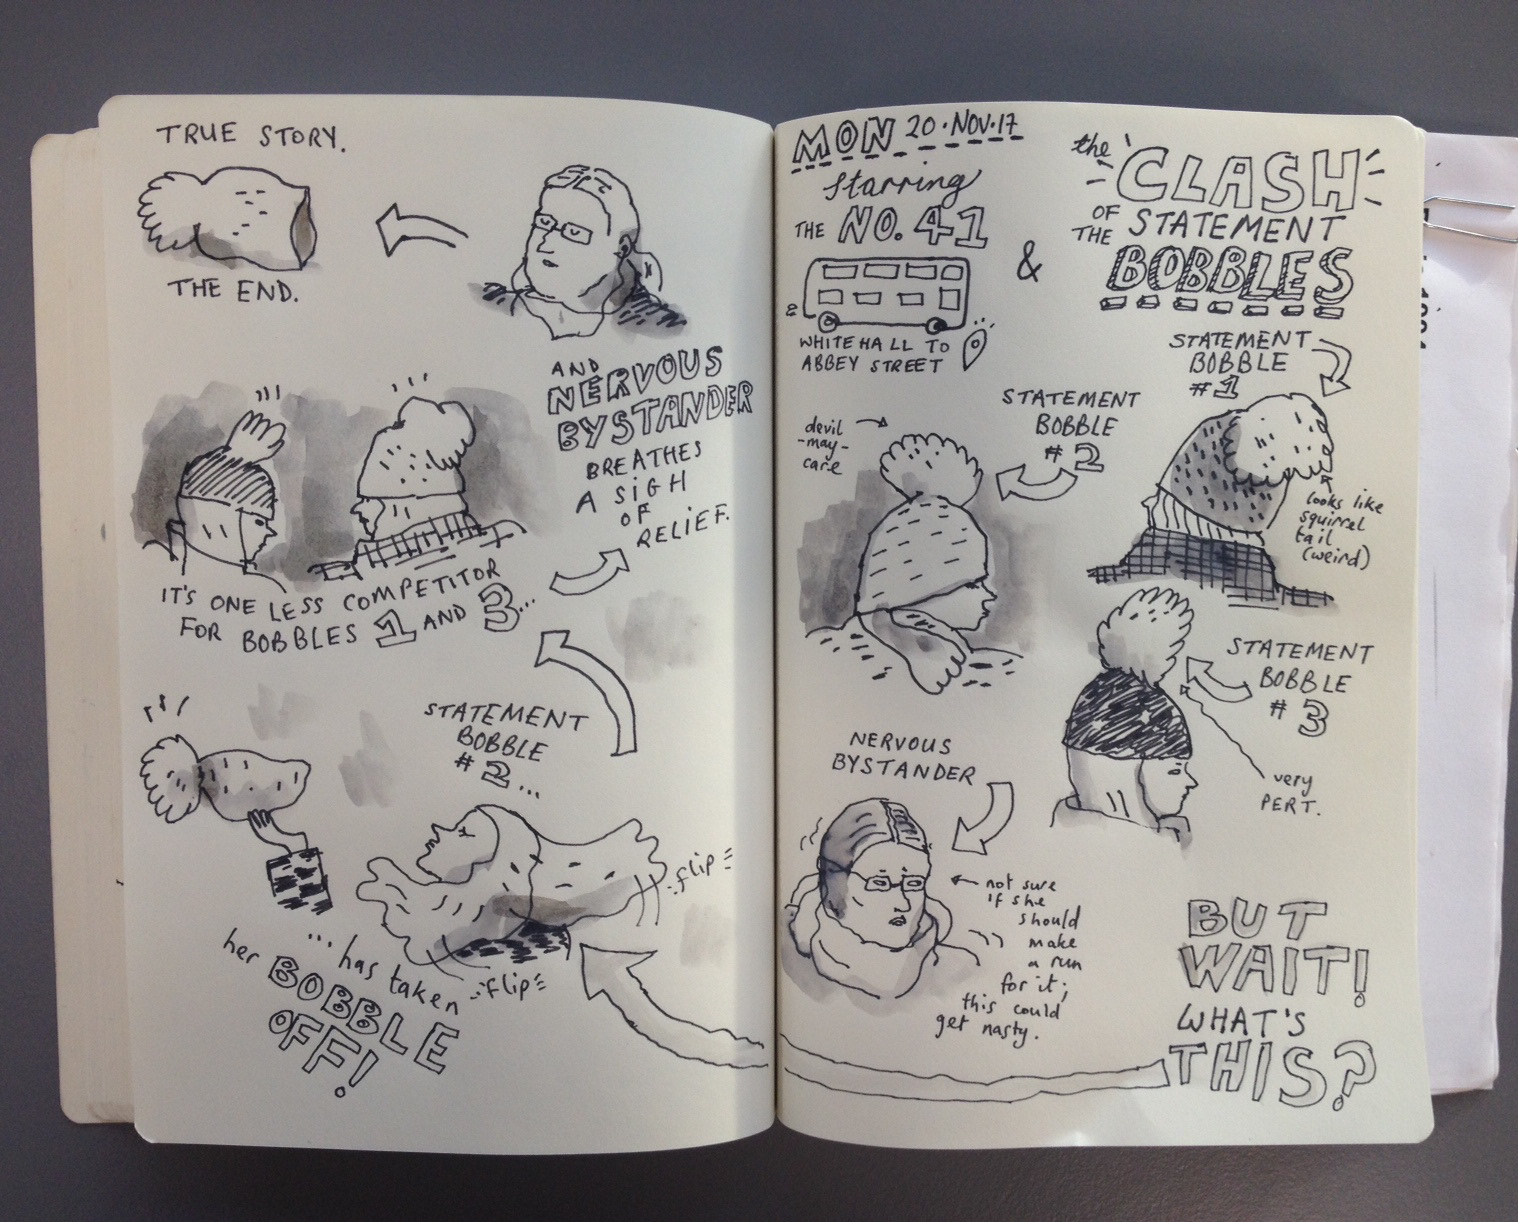 MON 20·NOV·17
starring
THE NO. 41
&
the CLASH
OF STATEMENT
THE BOBBLES
WHITEHALL TO
ABBEY STREET
STATEMENT
BOBBLE
#1
looks like
squirrel
tail
(weird)
STATEMENT
BOBBLE
#2
devil
-may-
care
STATEMENT
BOBBLE
#3
very
PERT.
NERVOUS
BYSTANDER
not sure
if she
should
make
a run
for it;
this could
get nasty.
BUT
WAIT!
WHAT'S
THIS?
flip
flip
STATEMENT
BOBBLE
#2...
...has taken
her BOBBLE
OFF!
IT'S ONE LESS COMPETITOR
FOR BOBBLES 1 AND 3...
AND
NERVOUS
BYSTANDER
BREATHES
A SIGH
OF
RELIEF.
TRUE STORY.
THE END.